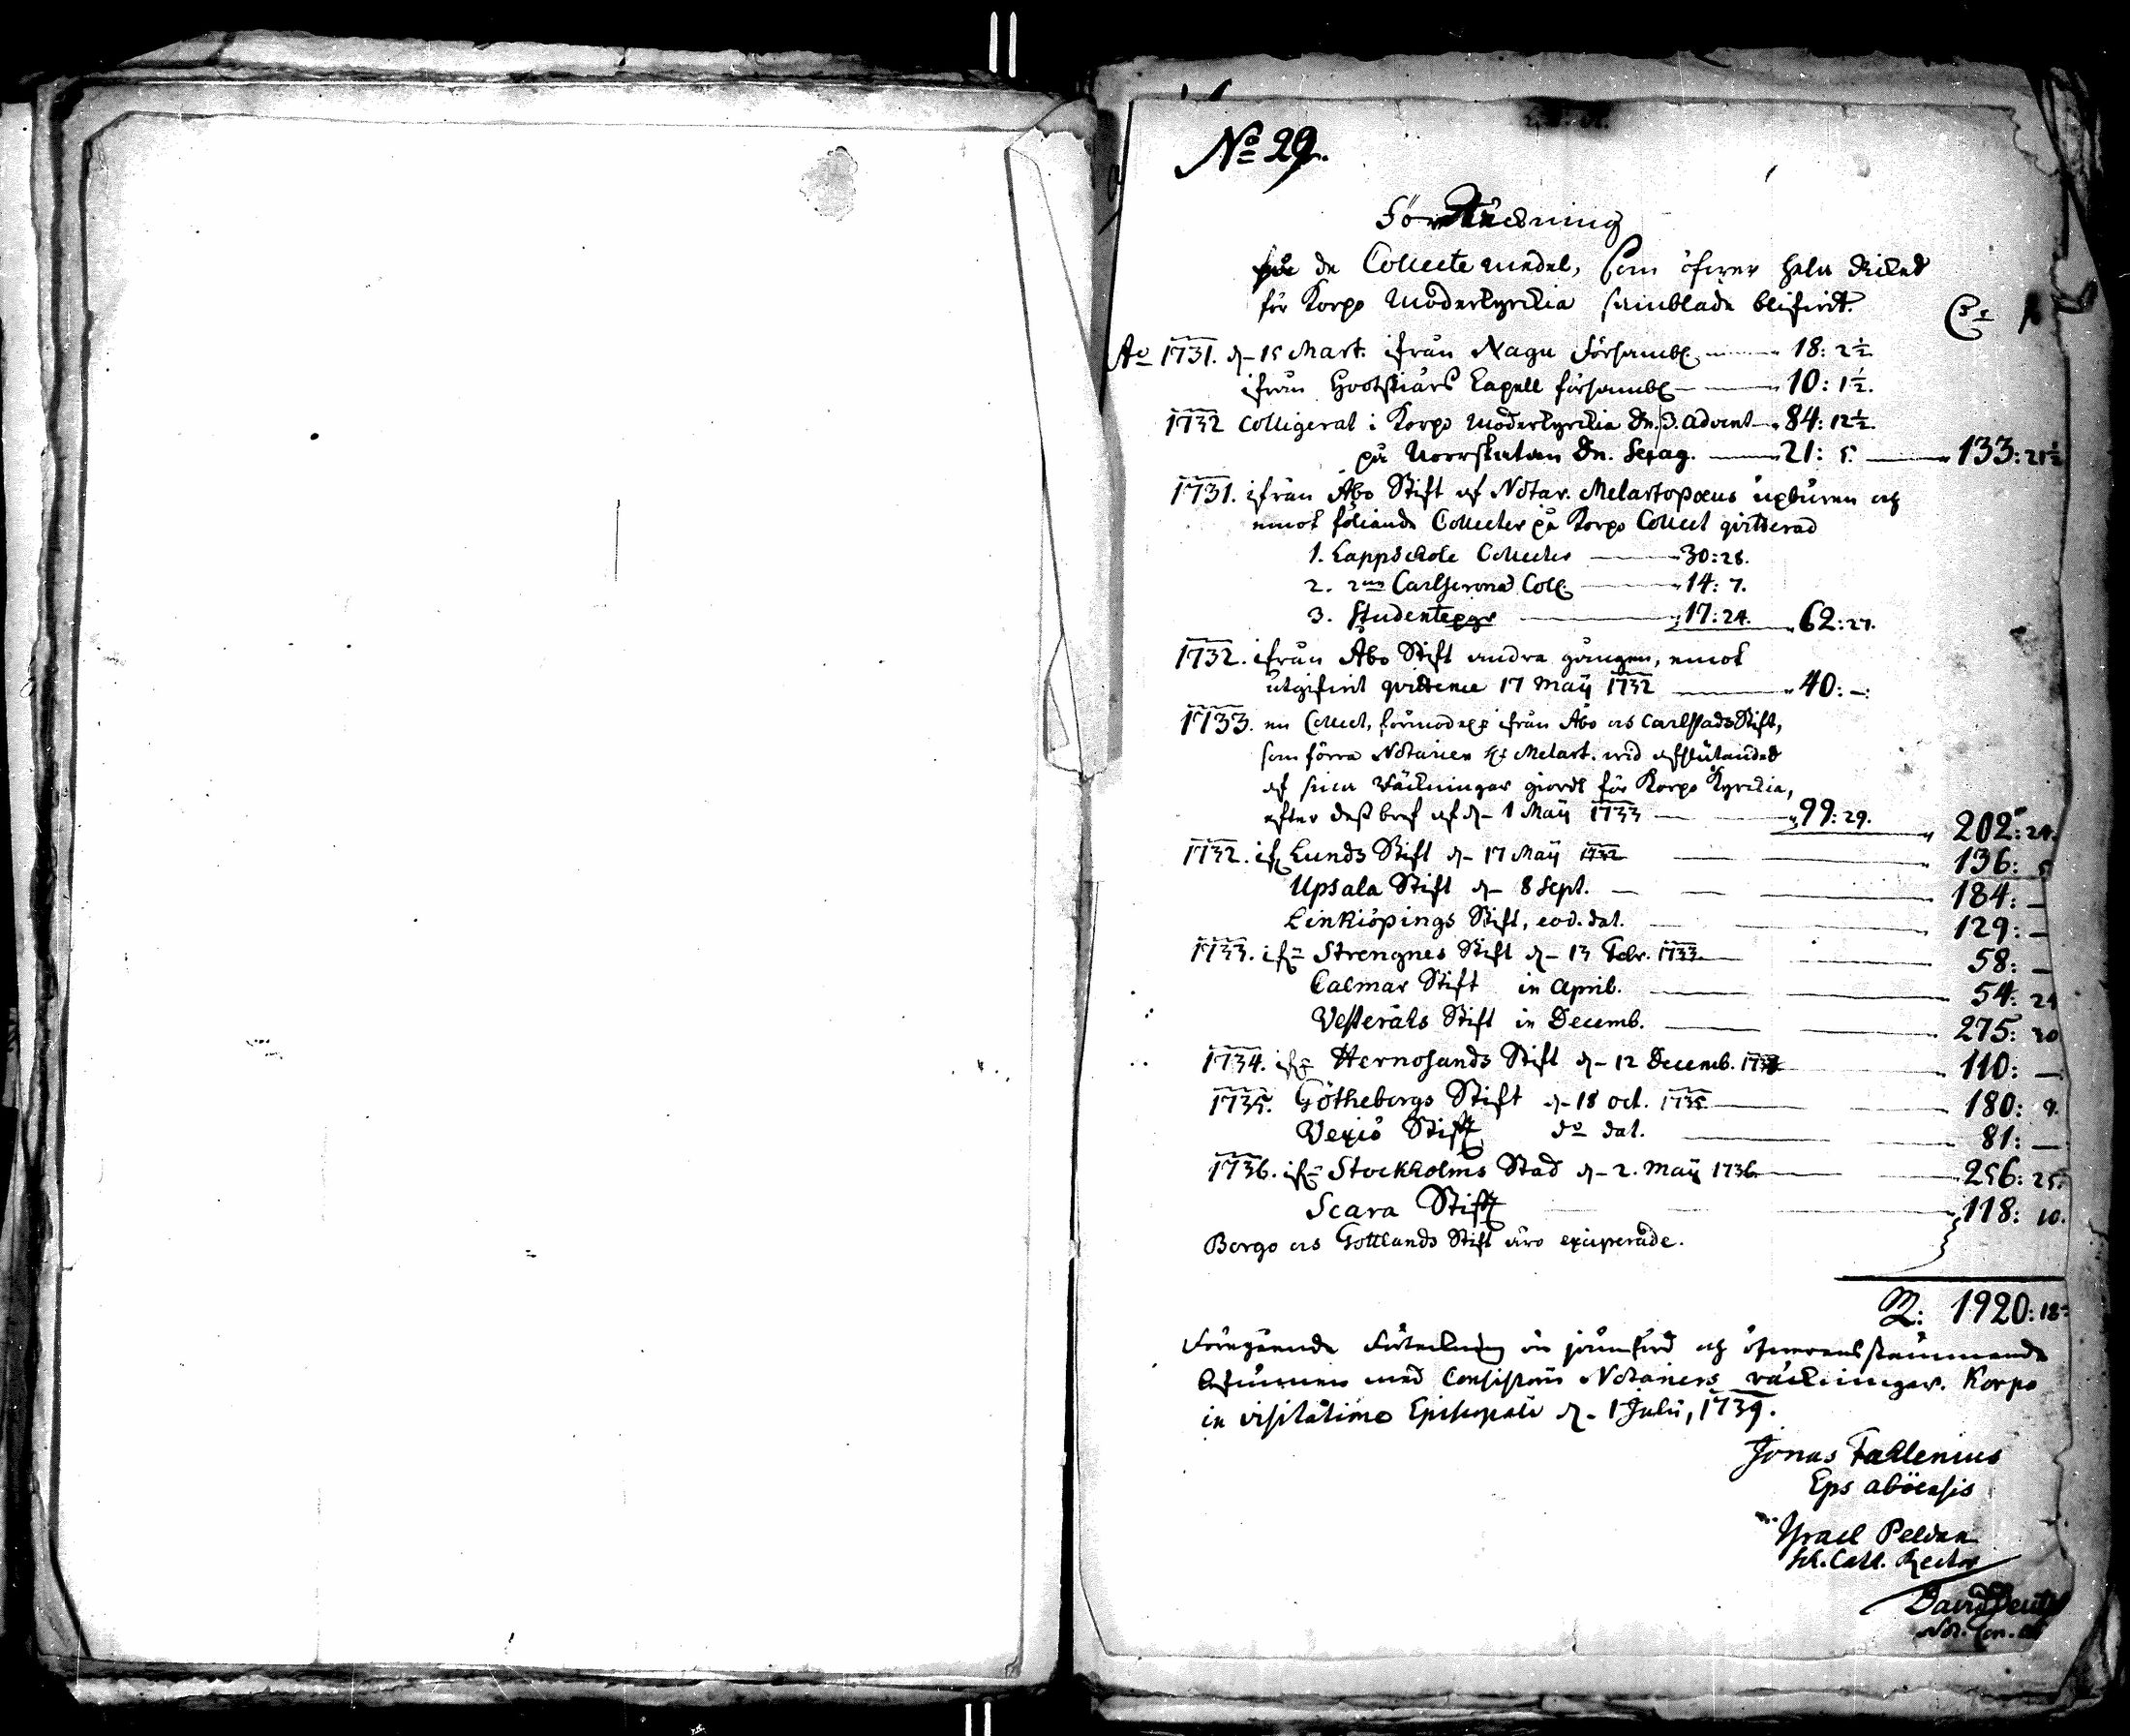 No 29.
Förteckning
på de Collecte medel, som öfwer hela Riket
för Korpo Moderkyrckia samblade blifwit.
Ao 1731. d– 15 Mart. ifrån Nagu Försambl. 18: 2½
ifrån Hootskiärs Capell försambl. 10: 1½.
1732 Colligerat i Korpo Moderkyrckia Dn. 3. Advent 84: 12½.
på Norrskatan Dn. Sexag. 21: 5. 133: 21½
1731. ifrån Åbo Stift af Notar. Melartopæus upburen och
emot föliande Collecter på Korpo Collect qvitterad
1. Lappschole Collecten 30: 28.
2. 2ne Carlscrona Coll. 14: 7.
3. Studentepgr 17: 24. 62: 27.
1732. ifrån Åbo Stift andra gången, emot
utgifwit qvittence 17 Maij 1732 40: –:
1733. en Collect, ifrån Åbo och Carlstads Stift,
som förra Notarien Melart. wid afslutandet
af sina Räckningar giordt för Korpo Kyrckia,
efter dess bref af d– 1 Maij 1733 99: 29. 202: 24.
1732. if. Lunds Stift d– 17 Maij 1732 136: 5
Upsala Stift d– 8 Sept. 184: –
Linkiöpings Stift, eod. dat. 129: –
1733. ifr Strengnes Stift d– 13 Febr. 1733. 58: –
Calmar Stift in April. 54: 24
Vesteråls Stift in Decemb. 275: 30
1734. ifr Hernosands Stift d– 12 Decemb. 1734 110: –
1735. Götheborgs Stift d– 18 oct. 1735 180: 9.
Vexiö Stift do dat. 81: –
1736. ifr Stockholms Stad d– 2. Maij 1736. 256: 25.
Scara Stift 118: 10.
Borgo och Gottlands Stift äro exciperade.
1920: 18
Föregående Förteckning är jämförd och öfwerensstämmande
befunnen med Consistorii Notariens räckningar. Korpo
in visitatione Episcopali d. 1 Julii, 1739.
Jonas Fahlenius
Eps aböensis
Israel Peldan
Sch. Cath. Rector
David Deutsch
Not. Con.